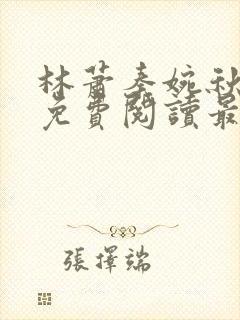 林蕭秦婉秋
免費閱讀最
張擇端